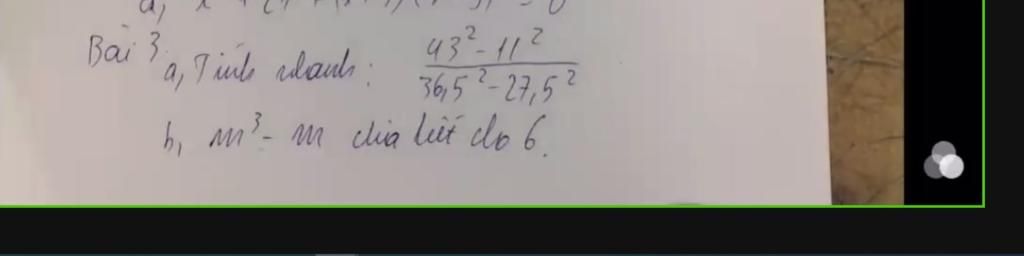 Bài 3
a, Tính nhanh: 43² - 11² / 36,5² - 27,5²
b, m³ - m chia hết cho 6.